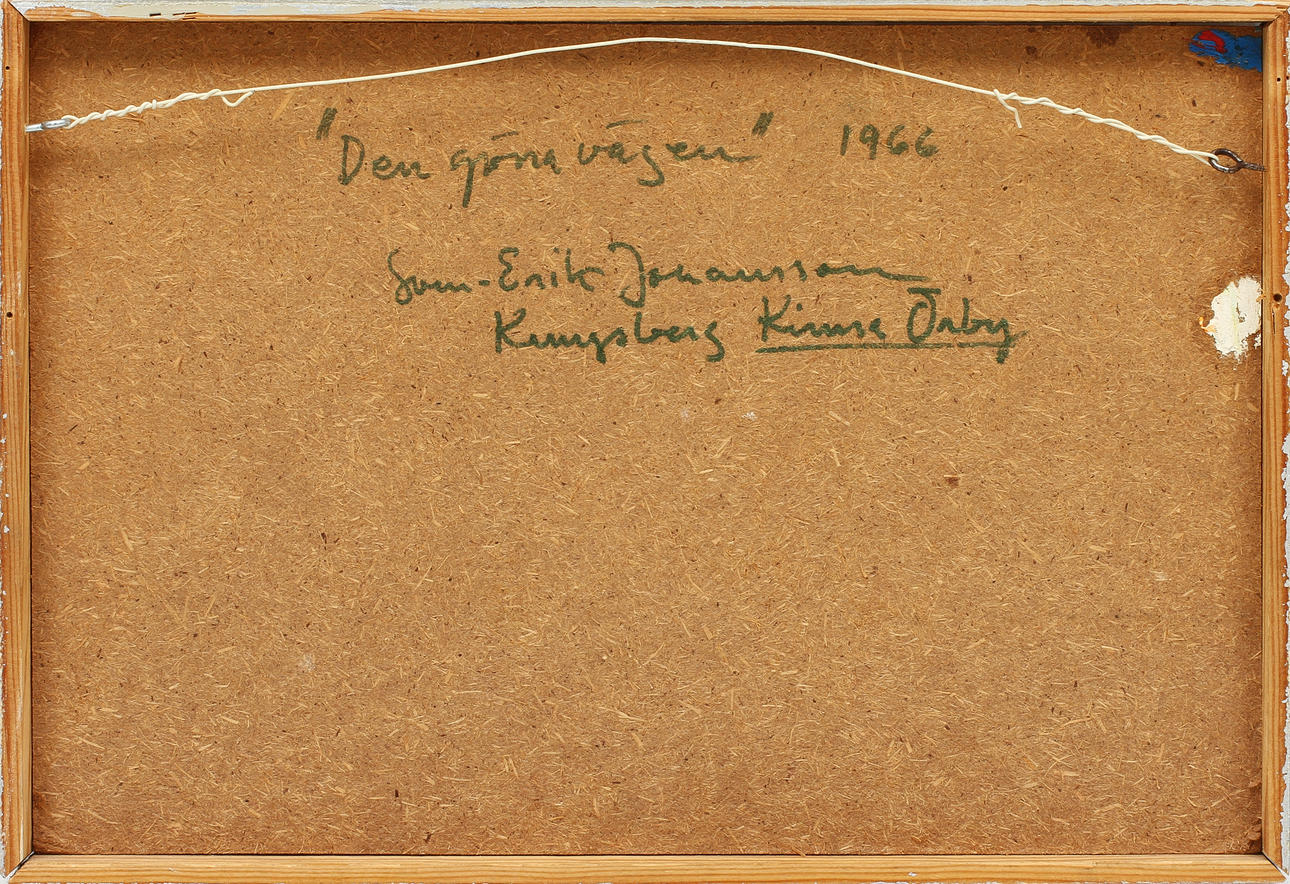 "Den gröna vägen" 1966
Sven-Erik Johansson
Kungsberg Kinna Örby